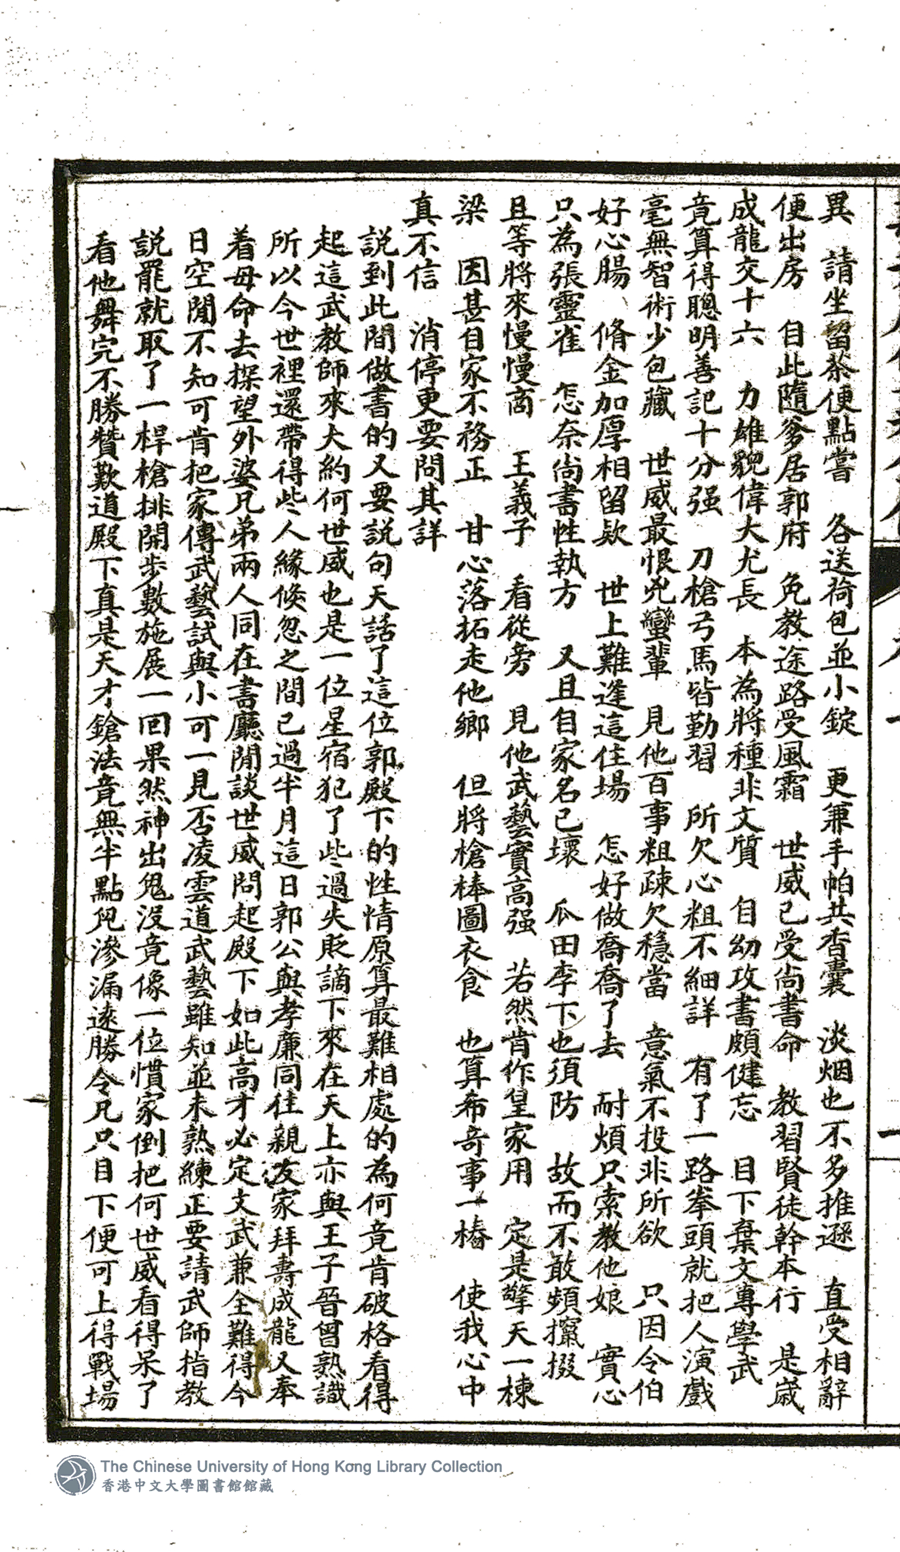 異　請坐留茶便點嘗　各送荷包並小錠　更兼手帕共香囊　淡烟也不多推遜　直受相辭
便出房　自此隨爹居郭府　免教途路受風霜　世威已受尚書命　教習賢徒幹本行　是歲
成龍交十六　力雄貌偉大尤長　本為將種非文質　自幼攻書頗健忘　目下棄文專學武
竟算得聰明善記十分强　刀槍弓馬皆勤習　所欠心粗不細詳　有了一路拳頭就把人演戲
毫無智術少包藏　世威最恨兇蠻輩　見他百事粗疎欠穩當　意氣不投非所欲　只因令伯
好心腸　脩金加厚相留欵　世上難逢這住塲　怎好做喬喬了去　耐煩只索教他娘　實心
只為張靈雀　怎奈尚書性執方　又且自家名已壞　瓜田李下也須防　故而不敢頻攛掇
且等將來慢慢商　王義子　看從旁　見他武藝實高强　若然肯作皇家用　定是擎天一棟
梁　因甚自家不務正　甘心落拓走他鄉　但將槍棒圖衣食　也算希奇事一樁　使我心中
真不信　消停更要問其詳
說到此間做書的又要說句天話了這位郭殿下的性情原算最難相處的為何竟肯破格看得
起這武教師來大約何世威也是一位星宿犯了些過失貶謫下來在天上亦與王子晉曾熟識
所以今世裡還帶得些人緣倐忽之間已過半月這日郭公與孝廉同往親友家拜壽成龍又奉
着母命去探望外婆兄弟兩人同在書廳閒談世威問起殿下如此高才必定文武兼全難得今
日空閒不知可肯把家傳武藝試與小可一見否凌雲道武藝雖知並未熟練正要請武師指教
說罷就取了一桿槍排開步數施展一回果然神出鬼沒竟像一位慣家倒把何世威看得呆了
看他舞完不勝贊歎道殿下真是天才鎗法竟無半點兒滲漏遠勝令兄只目下便可上得戰塲
The Chinese University of Hong Kong Library Collection
香港中文大學圖書館館藏